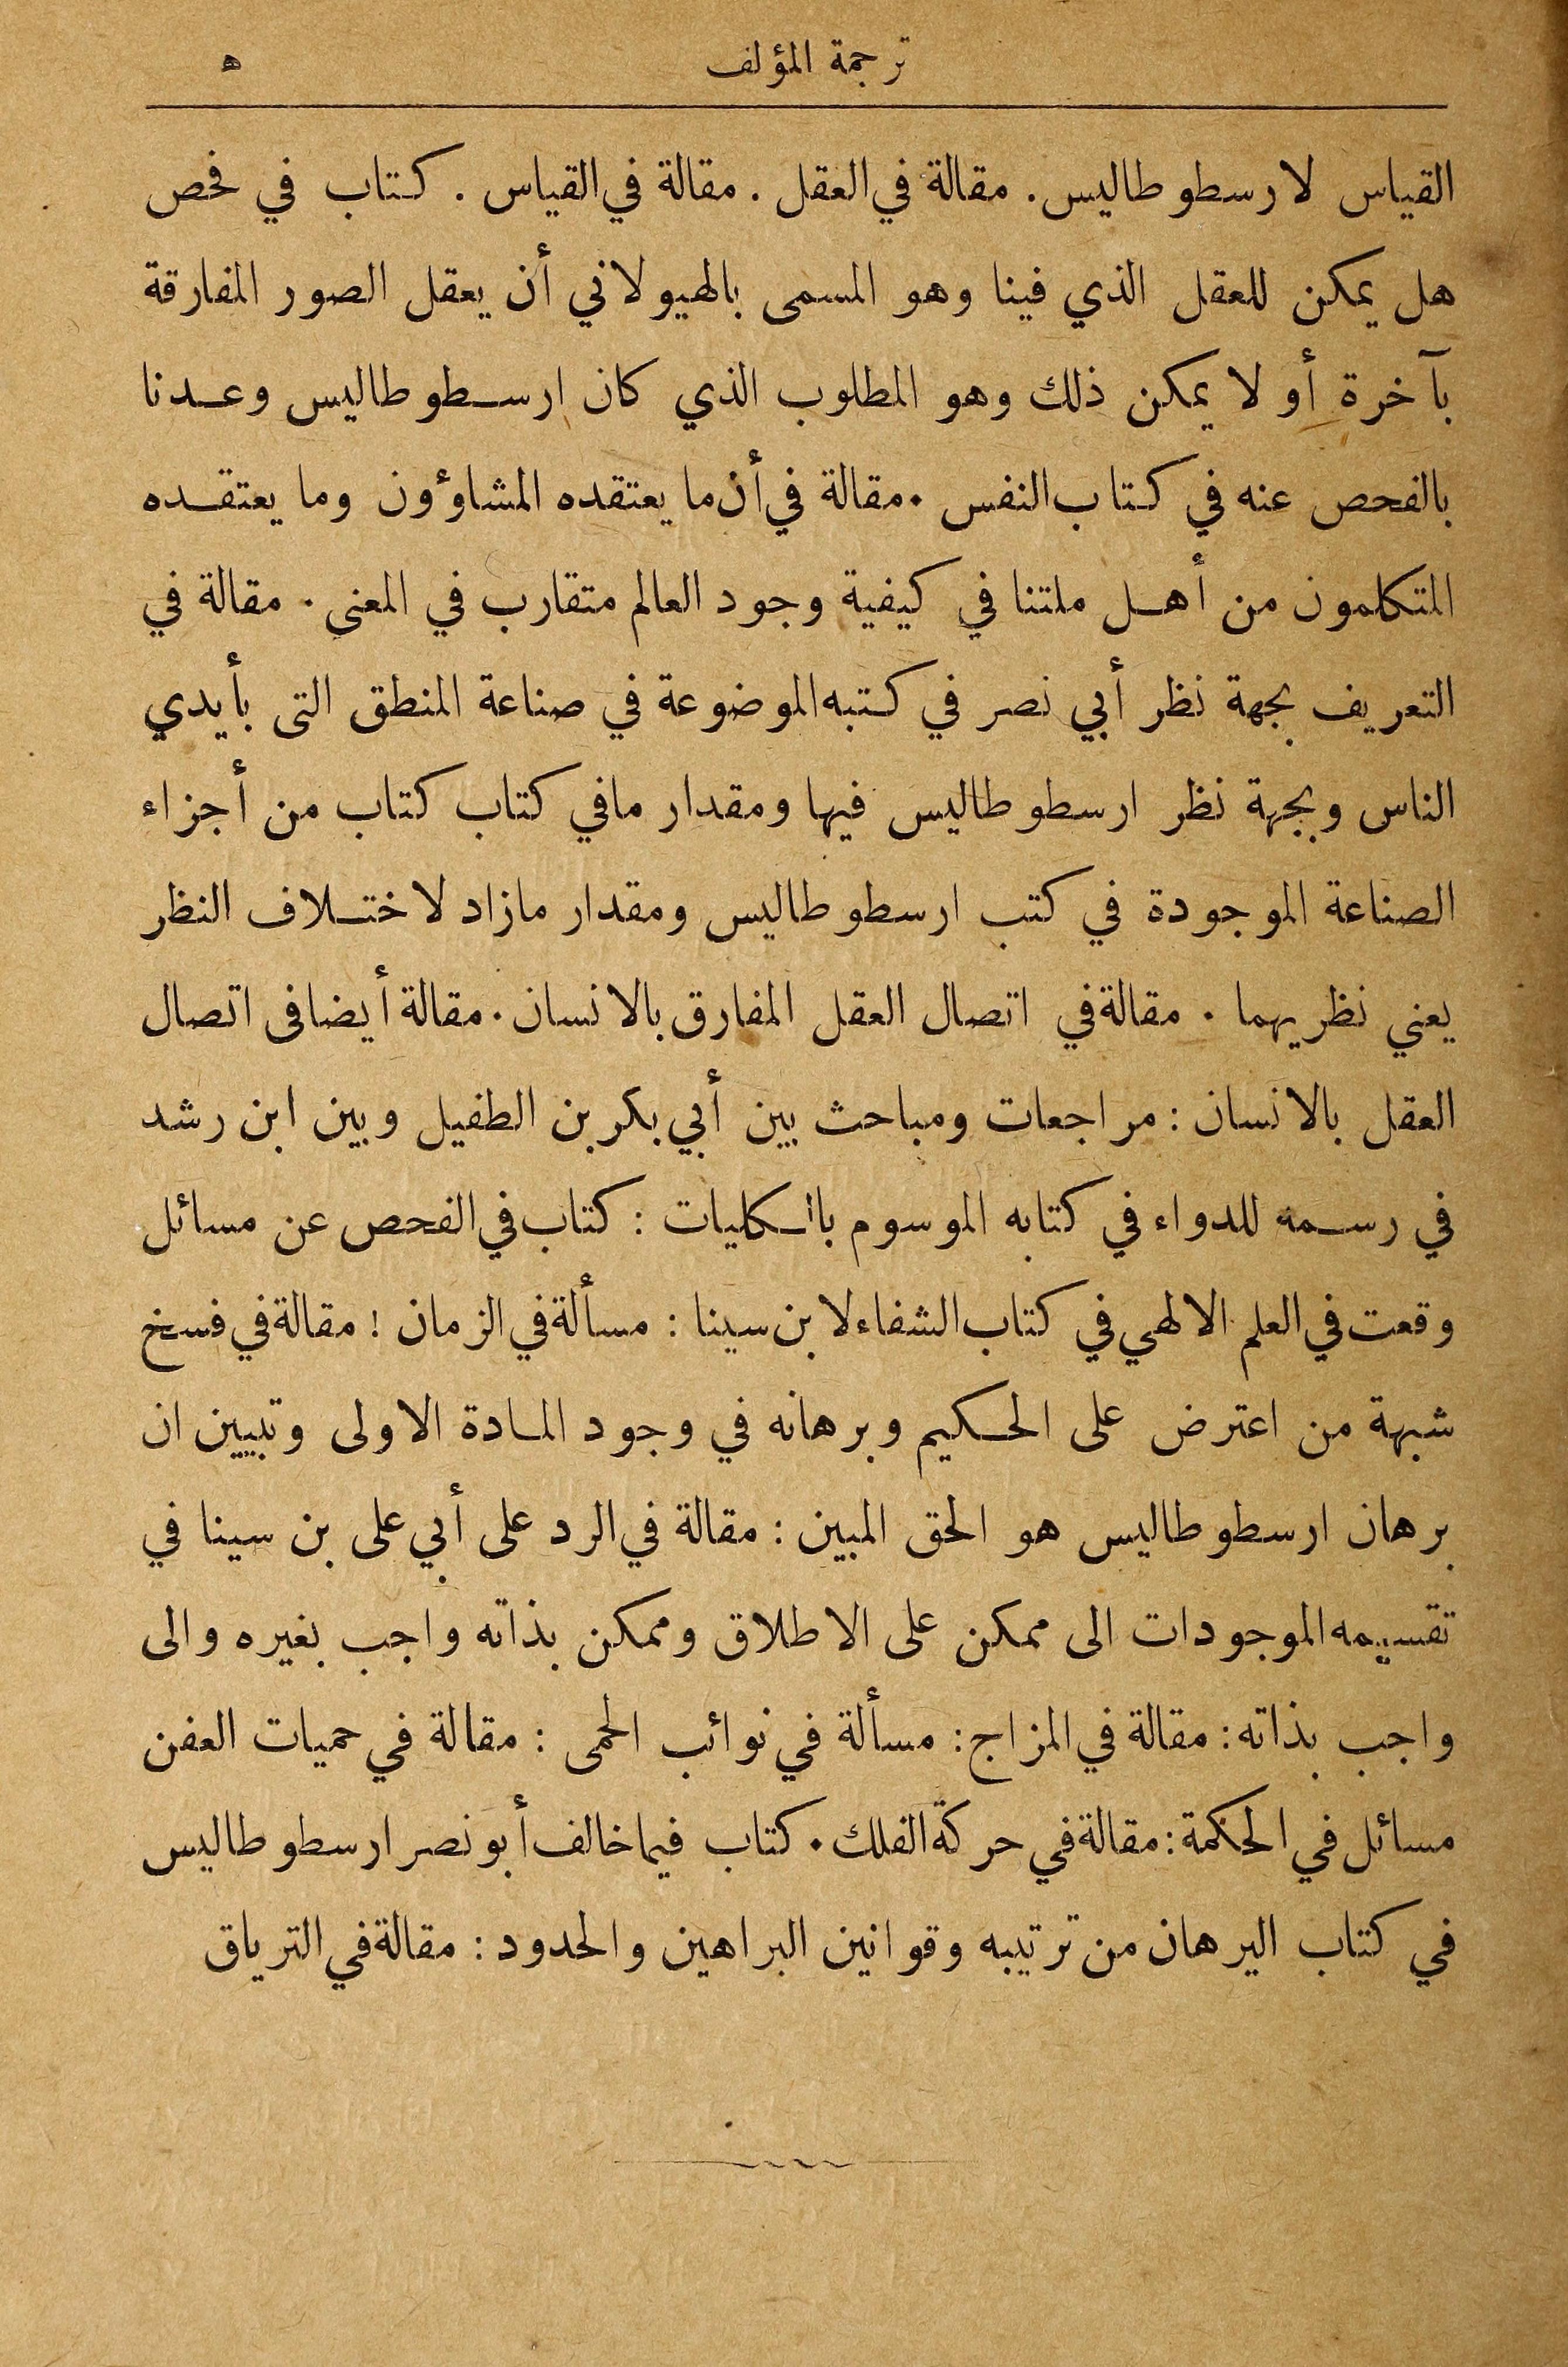 ترجمة المؤلف ه
القياس لارسطوطاليس. مقالة في العقل. مقالة في القياس. كتاب في فحص
هل يمكن للعقل الذي فينا وهو المسمى بالهيولاني أن يعقل الصور المفارقة
بآخرة أو لا يمكن ذلك وهو المطلوب الذي كان ارسطوطاليس وعدنا
بالفحص عنه في كتاب النفس. مقالة في أن ما يعتقده المشاؤون وما يعتقده
المتكلمون من أهل ملتنا في كيفية وجود العالم متقارب في المعنى. مقالة في
التعريف بجهة نظر أبي نصر في كتبه الموضوعة في صناعة المنطق التى بأيدي
الناس وبجهة نظر ارسطوطاليس فيها ومقدار مافي كتاب كتاب من أجزاء
الصناعة الموجودة في كتب ارسطوطاليس ومقدار مازاد لاختلاف النظر
يعني نظريهما. مقالة في اتصال العقل المفارق بالانسان. مقالة أيضا فى اتصال
العقل بالانسان: مراجعات ومباحث بين أبي بكر بن الطفيل وبين ابن رشد
في رسمه للدواء في كتابه الموسوم بالكليات: كتاب في الفحص عن مسائل
وقعت في العلم الالهي في كتاب الشفاء لابن سينا: مسألة في الزمان: مقالة في فسخ
شبهة من اعترض على الحكيم وبرهانه في وجود المادة الاولى وتبيين ان
برهان ارسطوطاليس هو الحق المبين: مقالة في الرد على أبي على بن سينا في
تقسيمه الموجودات الى ممكن على الاطلاق وممكن بذاته واجب بغيره والى
واجب بذاته: مقالة في المزاج: مسألة في نوائب الحمى: مقالة في حميات العفن
مسائل في الحكمة: مقالة في حركة الفلك. كتاب فيما خالف أبو نصر ارسطوطاليس
في كتاب البرهان من ترتيبه وقوانين البراهين والحدود: مقالة في الترياق